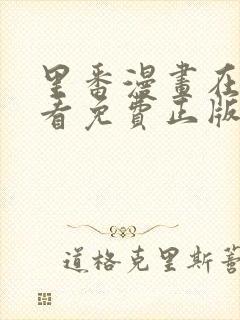 里番漫畫在
看免費正版
道格克里斯蒂